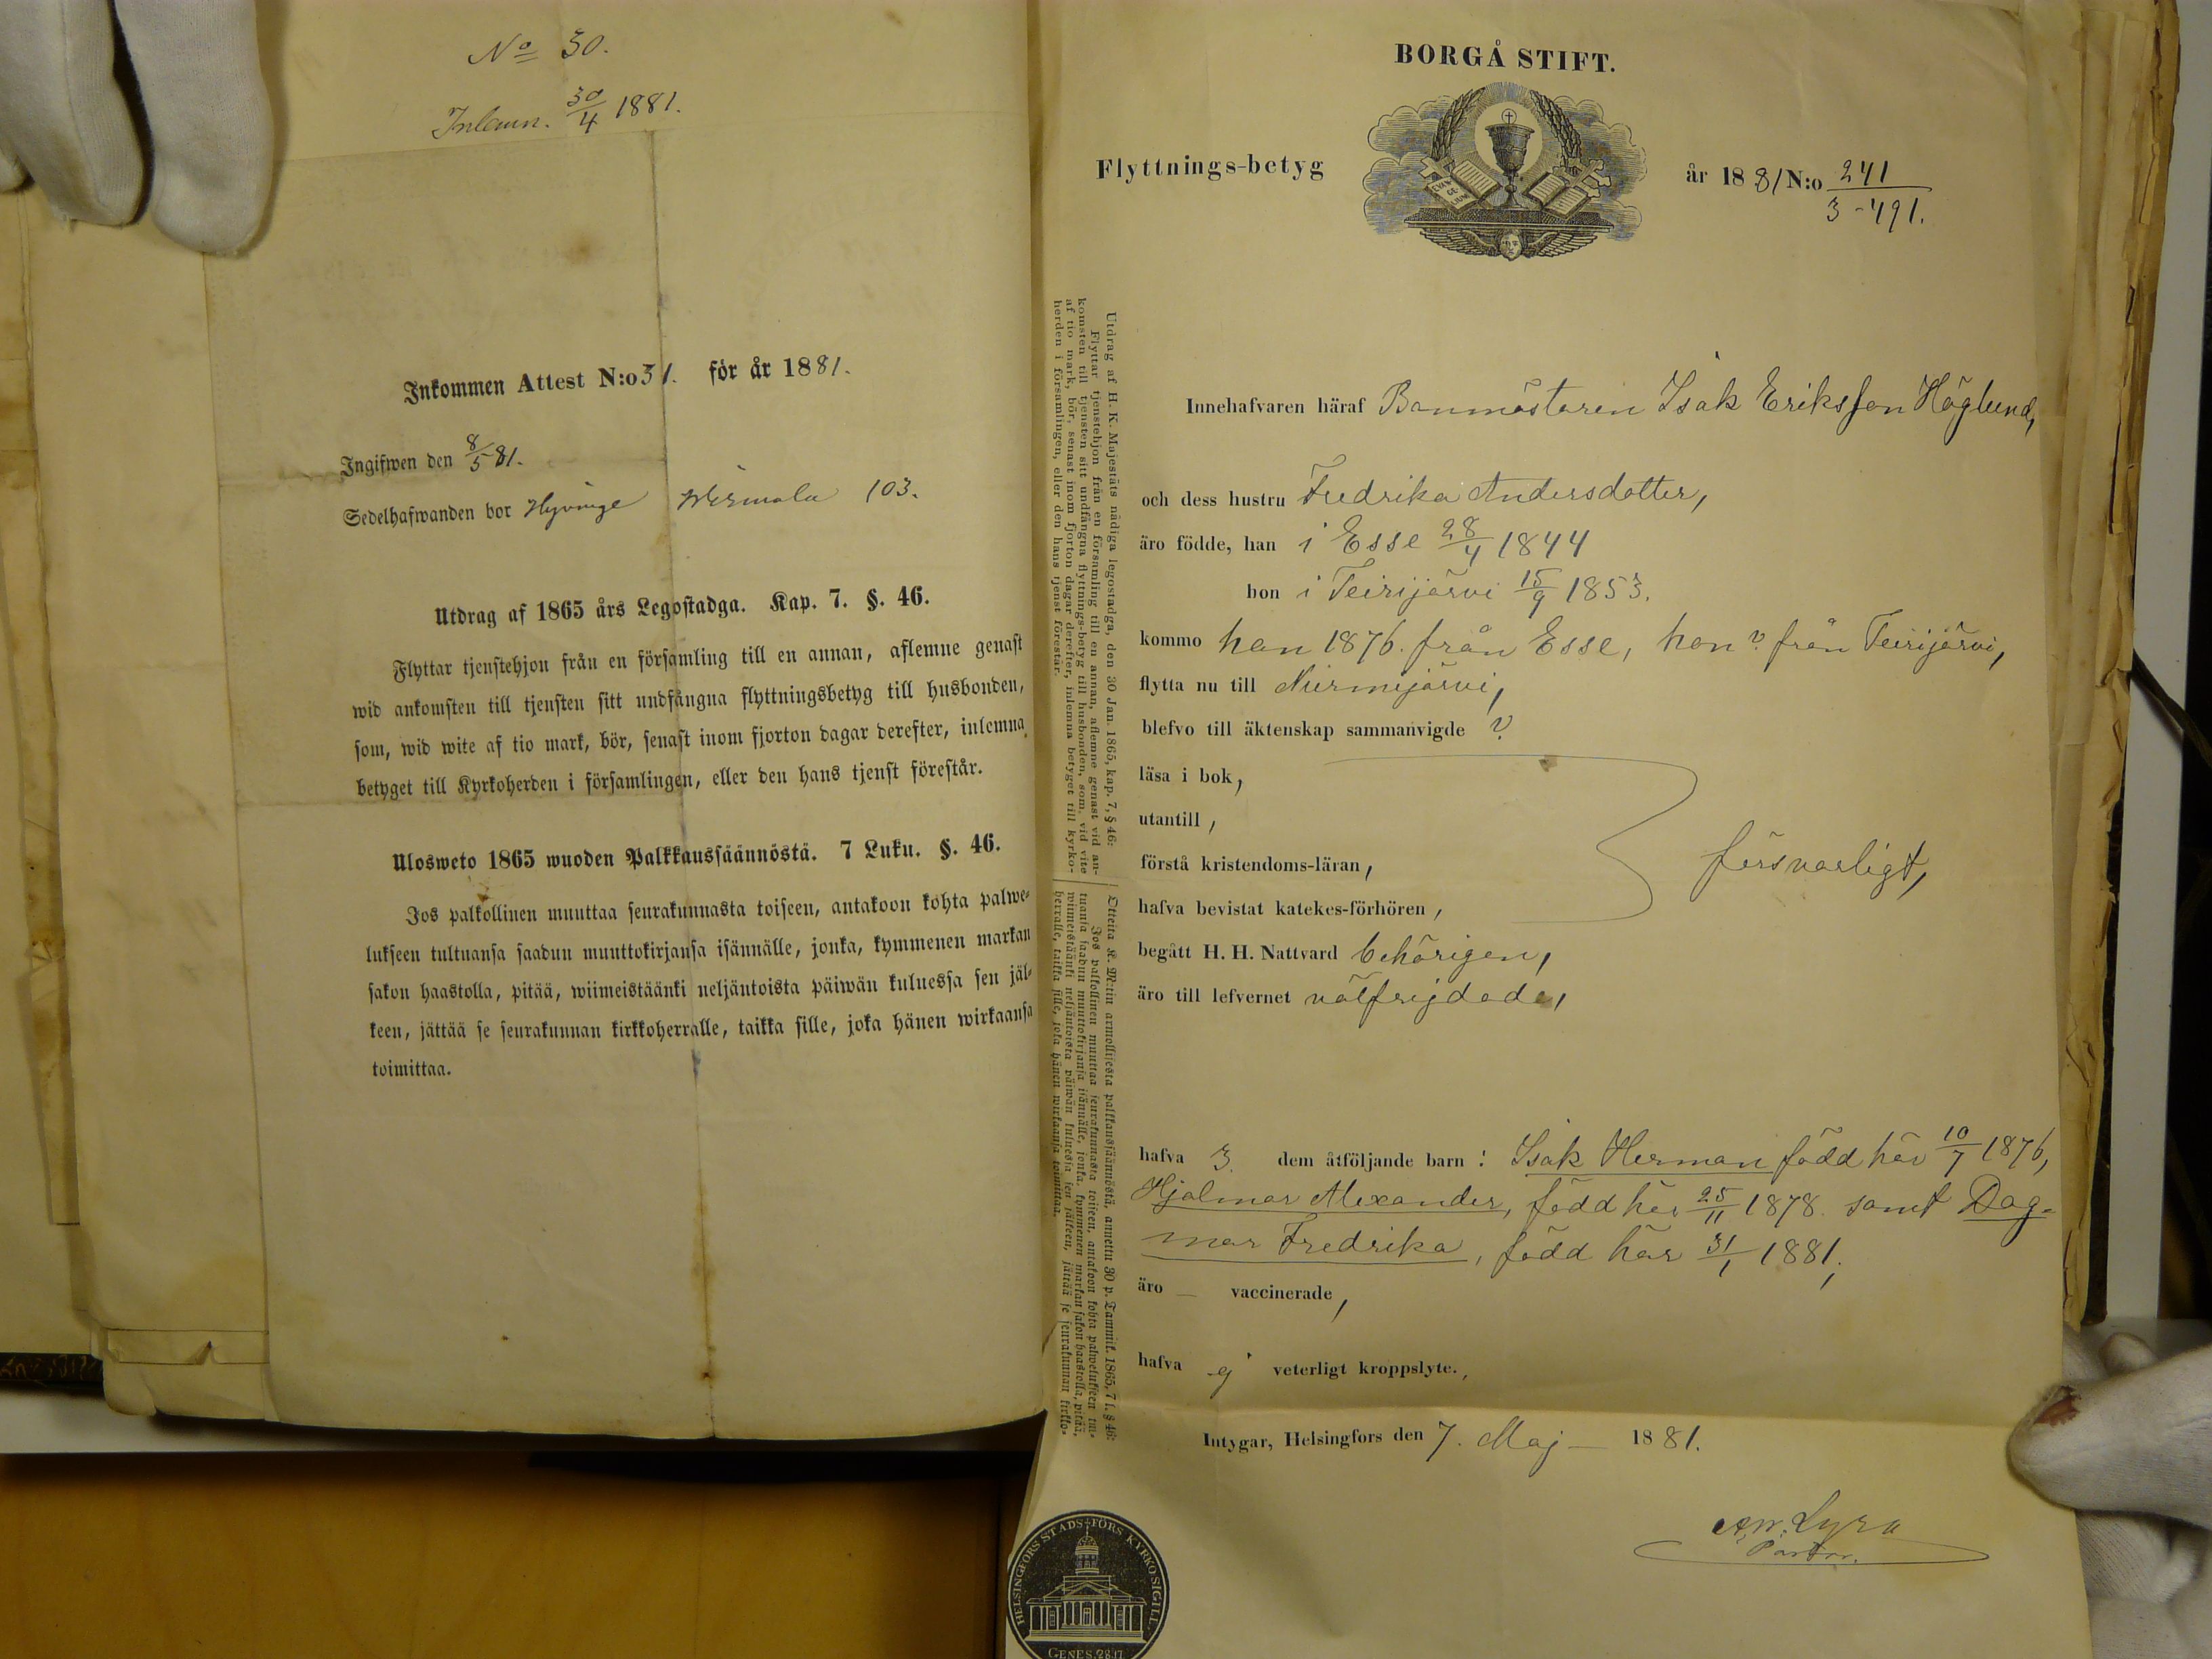 No 30.
Inlemn. 30/4 1881.
Inkommen Attest N:o 31. för år 1881.
Ingifwen den 8/5 81.
Sedelhafwanden bor Hyvinge 103.
Utdrag af 1865 års Legostadga. Kap. 7. §. 46.
Flyttar tjenstehjon från en församling till en annan, aflemne genast
wid ankomsten till tjensten sitt undfångna flyttningsbetyg till husbonden,
som, wid wite af tio mark, bör, senast inom fjorton dagar derefter, inlemna
betyget till Kyrkoherden i församlingen, eller den hans tjenst förestår.
Ulosweto 1865 wuoden Palkkaussäännöstä. 7 Luku. §. 46.
Jos palkollinen muuttaa seurakunnasta toiseen, antakoon kohta palwe-
lukseen tultuansa saadun muuttokirjansa isännälle, jonka, kymmenen markan
sakon haastolla, pitää, wiimeistäänki neljäntoista päiwän kuluessa sen jäl-
keen, jättää se seurakunnan kirkkoherralle, taikka sille, joka hänen wirkaansa
toimittaa.
BORGÅ STIFT.
Flyttnings-betyg
år 1881 N:o 241
3-491.
Utdrag af H. K. Majestäts nådiga legostadga, den 30 Jan. 1865, kap. 7, § 46:
Flyttar tjenstehjon från en församling till en annan, aflemne genast vid an-
komsten till tjensten sitt undfångna flyttnings-betyg till husbonden, som, vid vite
af tio mark, bör, senast inom fjorton dagar derefter, inlemna betyget till kyrko-
herden i församlingen, eller den hans tjenst förestår.
Otteita K. M:tin armollisesta palkkaussäännöstä, annettu 30 p. Tammik. 1865, 7 l. § 46:
Jos palkollinen muuttaa seurakunnasta toiseen, antakoon kohta palwelukseen tul-
tuansa saadun muuttokirjansa isännälle, jonka, kymmenen markan sakon haastolla, pitää,
wiimeistäänki neljäntoista päiwän kuluessa sen jälkeen, jättää se seurakunnan kirkko-
herralle, taikka sille, joka hänen wirkaansa toimittaa.
Innehafvaren häraf Banmästaren Isak Eriksson Höglund,
och dess hustru Fredrika Andersdotter,
äro födde, han i Esse 28/4 1844
hon i Teirijärvi 15/9 1853.
kommo han 1876. från Esse, hon ? från Teirijärvi,
flytta nu till Nurmijärvi,
blefvo till äktenskap sammanvigde ?
läsa i bok,
utantill,
förstå kristendoms-läran,
försvarligt,
hafva bevistat katekes-förhören,
begått H. H. Nattvard behörigen,
äro till lefvernet välfrejdade,
hafva 3. dem åtföljande barn: Isak Herman född här 10/7 1876,
Hjalmar Alexander, född här 25/11 1878. samt Dag-
mar Fredrika, född här 31/1 1881;
äro — vaccinerade,
hafva ej veterligt kroppslyte.,
Intygar, Helsingfors den 7. Maj — 1881.
Lyra
Pastor.
HELSINGFORS STADS-FÖRS KYRKOSIGILL.
GENES. 28.17